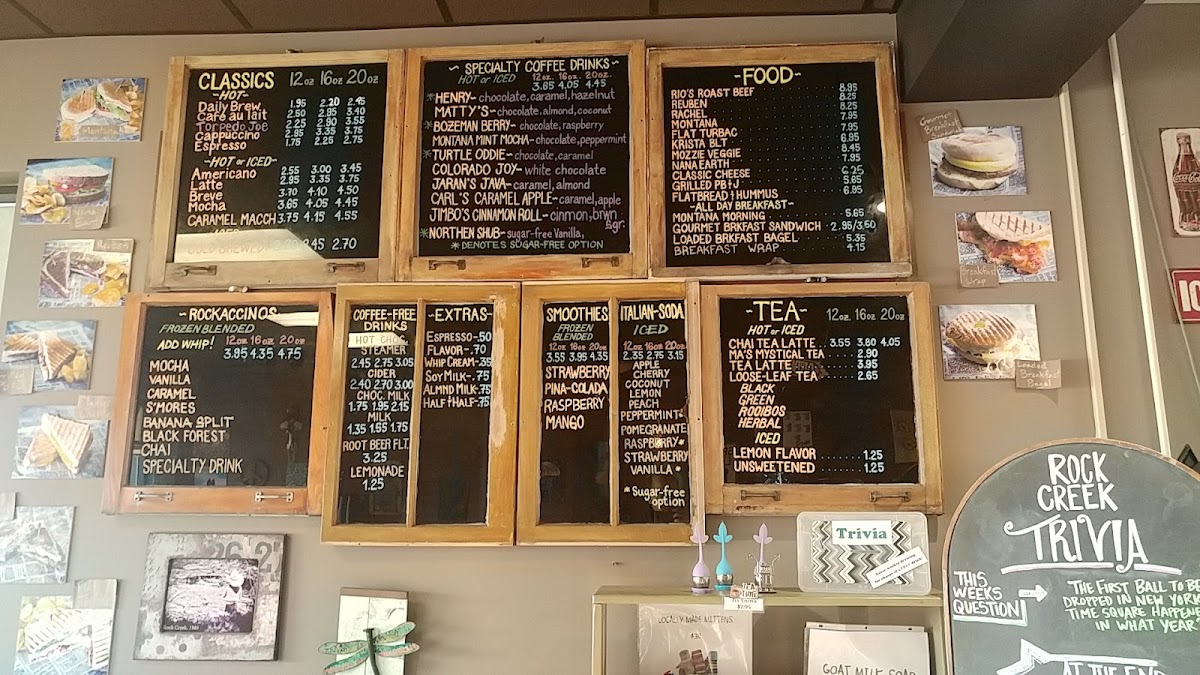 CLASSICS 12oz 16oz 20oz
-HOT-
Daily Brew 1.95 2.20 2.45
Café au lait 2.50 2.95 3.40
Torpedo Joe 2.25 2.90 3.55
Cappuccino 2.95 3.35 3.75
Espresso 1.75 2.25 2.75
-HOT or ICED-
Americano 2.55 3.00 3.45
Latte 2.95 3.35 3.75
Breve 3.70 4.10 4.50
Mocha 3.65 4.05 4.45
CARAMEL MACCH 3.75 4.15 4.55
ICED
COLD BREWED 2.45 2.70
~ SPECIALTY COFFEE DRINKS ~
HOT or ICED 12oz. 16oz. 20oz.
3.65 4.05 4.45
*HENRY- chocolate, caramel, hazelnut
MATTY'S- chocolate, almond, coconut
*BOZEMAN BERRY- chocolate, raspberry
MONTANA MINT MOCHA- chocolate, peppermint
*TURTLE ODDIE- chocolate, caramel
COLORADO JOY- white chocolate
JARAN'S JAVA- caramel, almond
CARL'S CARAMEL APPLE- caramel, apple
JIMBO'S CINNAMON ROLL- cinmon, brwn sgr.
*NORTHEN SHUB- sugar-free Vanilla,
*DENOTES SUGAR-FREE OPTION
-FOOD-
RIO'S ROAST BEEF 8.95
REUBEN 8.25
RACHEL 8.25
MONTANA 7.95
FLAT TURBAC 7.95
KRISTA BLT 6.95
MOZZIE VEGGIE 8.45
NANA EARTH 7.95
CLASSIC CHEESE 6.25
GRILLED PB+J 5.65
FLATBREAD + HUMMUS 6.95
-ALL DAY BREAKFAST-
MONTANA MORNING 5.65
GOURMET BRKFAST SANDWICH 2.95/3.50
LOADED BRKFAST BAGEL 5.35
BREAKFAST WRAP 4.15
- ROCKACCINOS
FROZEN BLENDED
ADD WHIP! 12oz 16oz 20oz
3.95 4.35 4.75
MOCHA
VANILLA
CARAMEL
S'MORES
BANANA SPLIT
BLACK FOREST
CHAI
SPECIALTY DRINK
COFFEE-FREE
DRINKS
HOT CHOC.
STEAMER
2.45 2.75 3.05
CIDER
2.40 2.70 3.00
CHOC. MILK
1.75 1.95 2.15
MILK
1.35 1.55 1.75
ROOT BEER FLT.
3.25
LEMONADE
1.25
-EXTRAS-
Espresso-.50
FLAVOR-.70
WHIP CREAM-.35
SOY MILK-.75
ALMND MILK-.75
HALF + HALF-.75
SMOOTHIES
FROZEN
BLENDED
12oz 16oz 20oz
3.55 3.95 4.35
STRAWBERRY
PINA-COLADA
RASPBERRY
MANGO
ITALIAN-SODA
ICED
12oz 16oz 20oz
2.35 2.75 3.15
APPLE
CHERRY
COCONUT
LEMON
PEACH
PEPPERMINT*
POMEGRANATE
RASPBERRY*
STRAWBERRY
VANILLA *
*Sugar-free
option
-TEA-
HOT or ICED 12oz. 16oz 20oz
CHAI TEA LATTE 3.55 3.80 4.05
MA'S MYSTICAL TEA 2.90
TEA LATTE 3.95
LOOSE-LEAF TEA 2.65
BLACK
GREEN
ROOIBOS
HERBAL
ICED
LEMON FLAVOR 1.25
UNSWEETENED 1.25
Montana
Gourmet
Breakfast
Breakfast
Wrap
Loaded
Breakfast
Bagel
Coca-Cola
Rock Creek, 1983
Trivia
$2.95
LOCALLY MADE MITTENS
$30
GOAT MILK SOAP
ROCK
CREEK
TRIVIA
THIS
WEEKS
QUESTION
THE FIRST BALL TO BE
DROPPED IN NEW YORK
TIME SQUARE HAPPENE
IN WHAT YEAR?
AT THE END